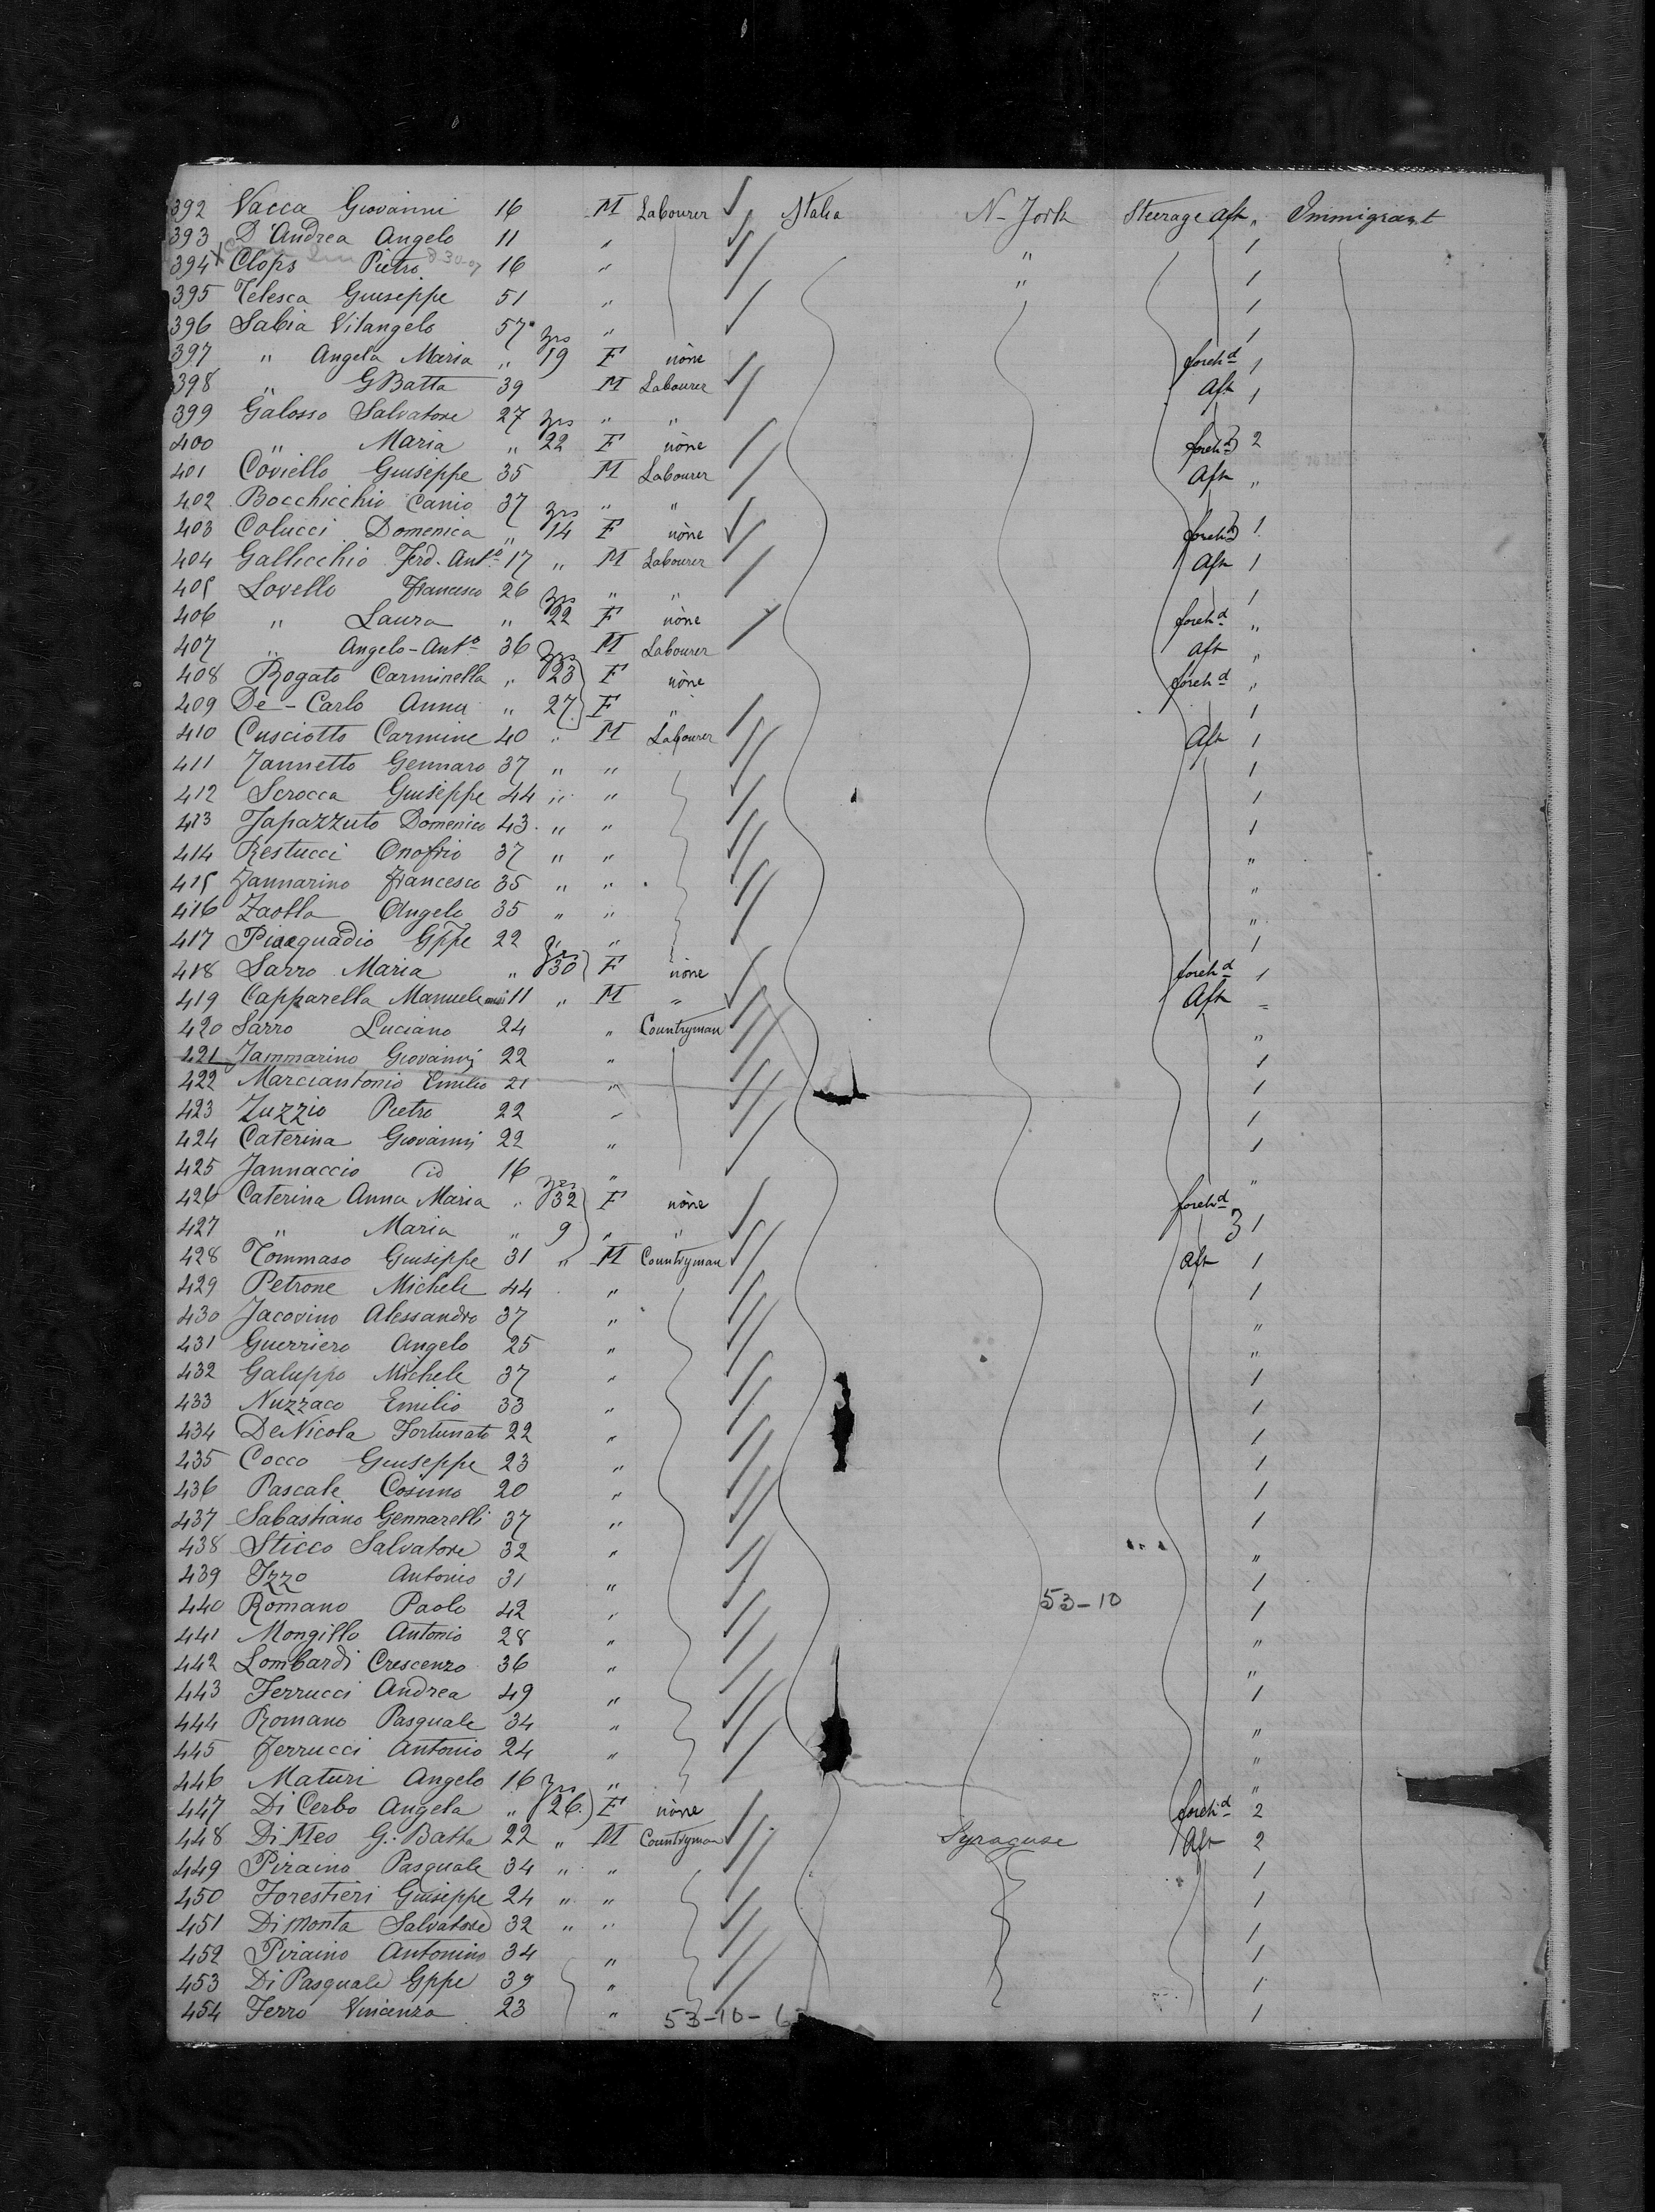 392 Vacca Giovanni 16 M Labourer Italia N-York Steerage Aft " Immigrant
393 D'Andrea Angelo 11 " " 1
394 Clops Pietro 16 " " 1
395 Telesca Giuseppe 51 " 1
396 Sabia Vitangelo 57 " 1
397 " Angela Maria " yrs 19 F none foreh.d 1
398 " GBatta 39 M Labourer Aft 1
399 Galosso Salvatore 27 " "
400 " Maria " yrs 22 F none foreh.d 2
401 Coviello Giuseppe 35 M Labourer Aft "
402 Bocchicchio Canio 37 " "
403 Colucci Domenica " yrs 14 F none foreh.d 1
404 Gallicchio Ferd. Ant.o 17 " M Labourer Aft 1
405 Lovello Francesco 26 " " 1
406 " Laura " yrs 22 F none foreh.d "
407 " Angelo-Ant.o 36 M Labourer Aft "
408 Rogato Carminella " yrs 23 F none foreh.d "
409 De-Carlo Anna " 27 F " 1
410 Cusciotto Carmine 40 " M Labourer Aft 1
411 Jannetto Gennaro 37 " " 1
412 Scrocca Giuseppe 44 " " 1
413 Japazzuto Domenico 43 " " 1
414 Restucci Onofrio 37 " " "
415 Jannarino Francesco 35 " " "
416 Zaolla Angelo 35 " " "
417 Gppe 22 " " 1
418 Sarro Maria " yrs 30 F none foreh.d 1
419 Capparella Manuele mesi 11 " M " Aft "
420 Sarro Luciano 24 " Countryman "
421 Jammarino Giovanni 22 " 1
422 Marciantonio Emilio 21 " 1
423 Zuzzio Pietro 22 " 1
424 Caterina Giovanni 22 " 1
425 Jannaccio id 16 " "
426 Caterina Anna Maria " yrs 32 F none foreh.d
427 " Maria " 9 " " 3 1
428 Tommaso Giuseppe 31 " M Countryman Aft 1
429 Petrone Michele 44 " 1
430 Jacovino Alessandro 37 " "
431 Guerriero Angelo 25 " "
432 Galuppo Michele 37 " 1
433 Nuzzaco Emilio 33 " 1
434 DeNicola Fortunato 22 " 1
435 Cocco Giuseppe 23 " 1
436 Pascale Cosimo 20 " 1
437 Sabastiano Gennarelli 37 " 1
438 Sticco Salvatore 32 " "
439 Izzo Antonio 31 " 1
440 Romano Paolo 42 " 53-10 1
441 Mongillo Antonio 28 " "
442 Lombardi Crescenzo 36 " "
443 Ferrucci Andrea 49 " 1
444 Romano Pasquale 34 " "
445 Ferrucci Antonio 24 " "
446 Maturi Angelo 16 " "
447 Di Cerbo Angela " yrs 26 F none foreh.d 2
448 Di Meo G. Batta 22 " M Countryman Syracuse Aft 2
449 Piraino Pasquale 34 " " 1
450 Forestieri Giuseppe 24 " " 1
451 Dimonta Salvatore 32 " " 1
452 Piraino Antonino 34 " 1
453 Di Pasquale Gppe 39 " 1
454 Ferro Vincenzo 23 " 1
53-10-6